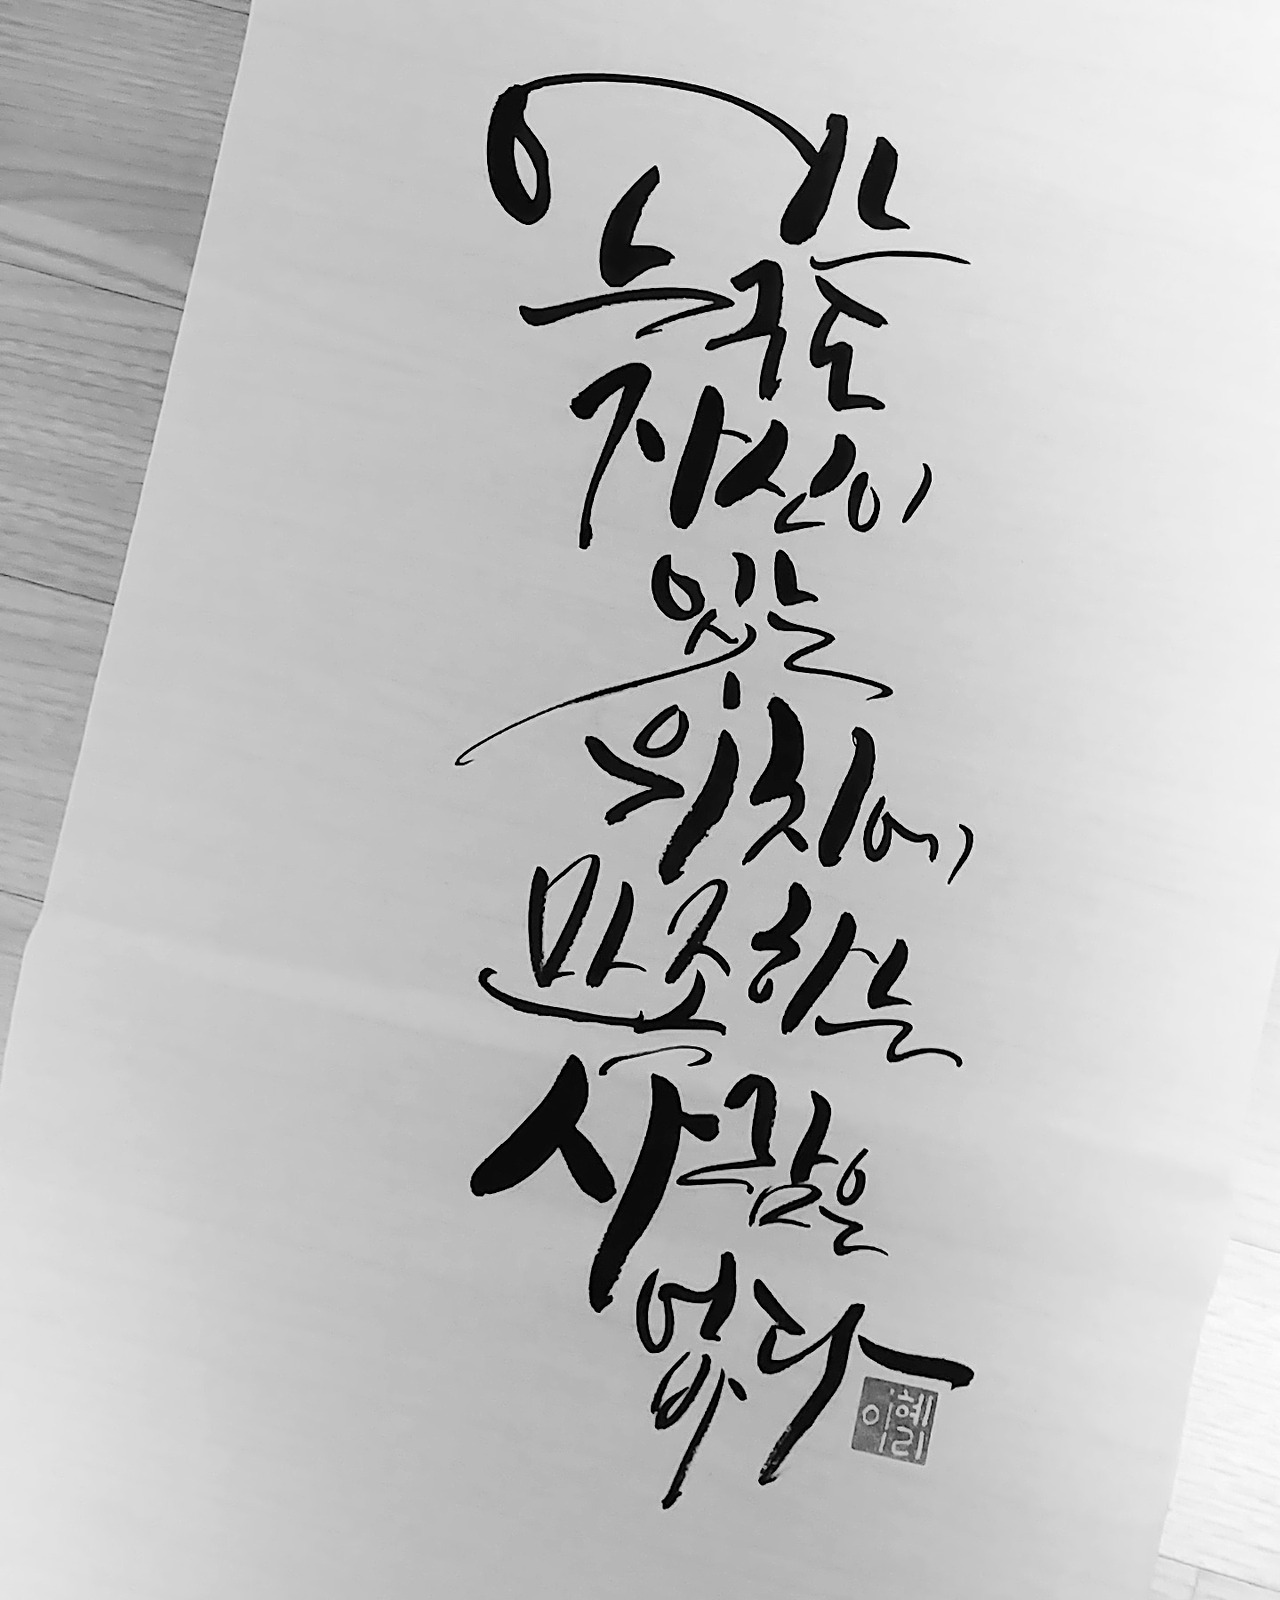 어느
누구도
자신이
있는
위치에
만족하는
사람은
없다
이혜리